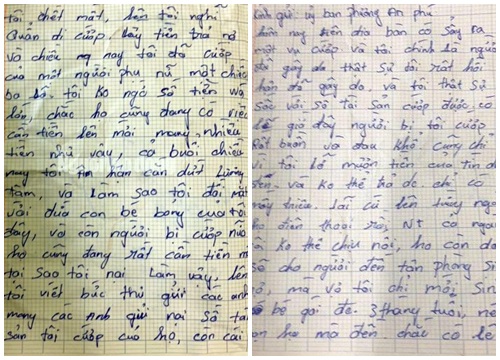 tôi chết mất, lên tôi nghĩ
Quẩn đi cướp. Lấy tiền trả nợ
và chiều ng nay tôi đã cướp
của một người phụ nữ, một chiếc
ba lô, tôi ko ngờ số tiền wa
lớn, chắc họ cũng đang có việc
cần tiền lên mới mang nhiều
tiền như vậy, cả buổi chiều
nay tôi ân hận cắn dứt lương
tâm, và làm sao tôi đối mặt
với đứa con bé bỏng của tôi
đây, và còn người bị cướp nữa
họ cũng đang rất cần tiền mà
tại sao tôi nại làm vậy, lên
tôi viết bức thư gửi các anh
mong các anh gửi nại số tài
sản tôi cướp của họ, còn cái
kính gửi uỷ ban phường An phú
hôm nay trên địa bàn có sảy ra
một vụ cướp và tôi chính là người
đã gây do thật sự tôi rất hối
hận đã gây do, và tôi thật sự
sốc với số tài sản cướp được, có
lẽ giờ đây người bị tôi cướp
rất buồn và đau khổ cũng chỉ
vì tôi bố mượn tiền của tín dụng
đen và ko thể trả dc. chỉ có
mấy triệu. lãi cứ lên từng ngày
họ điện thoại rồi, NT có ngày
ko thể chịu nổi, họ còn
cho người đến tận phòng
mà vợ tôi chỉ mới sinh
bé gái dc. 3 tháng tuổi, nếu
họ mà đến chắc có lẽ